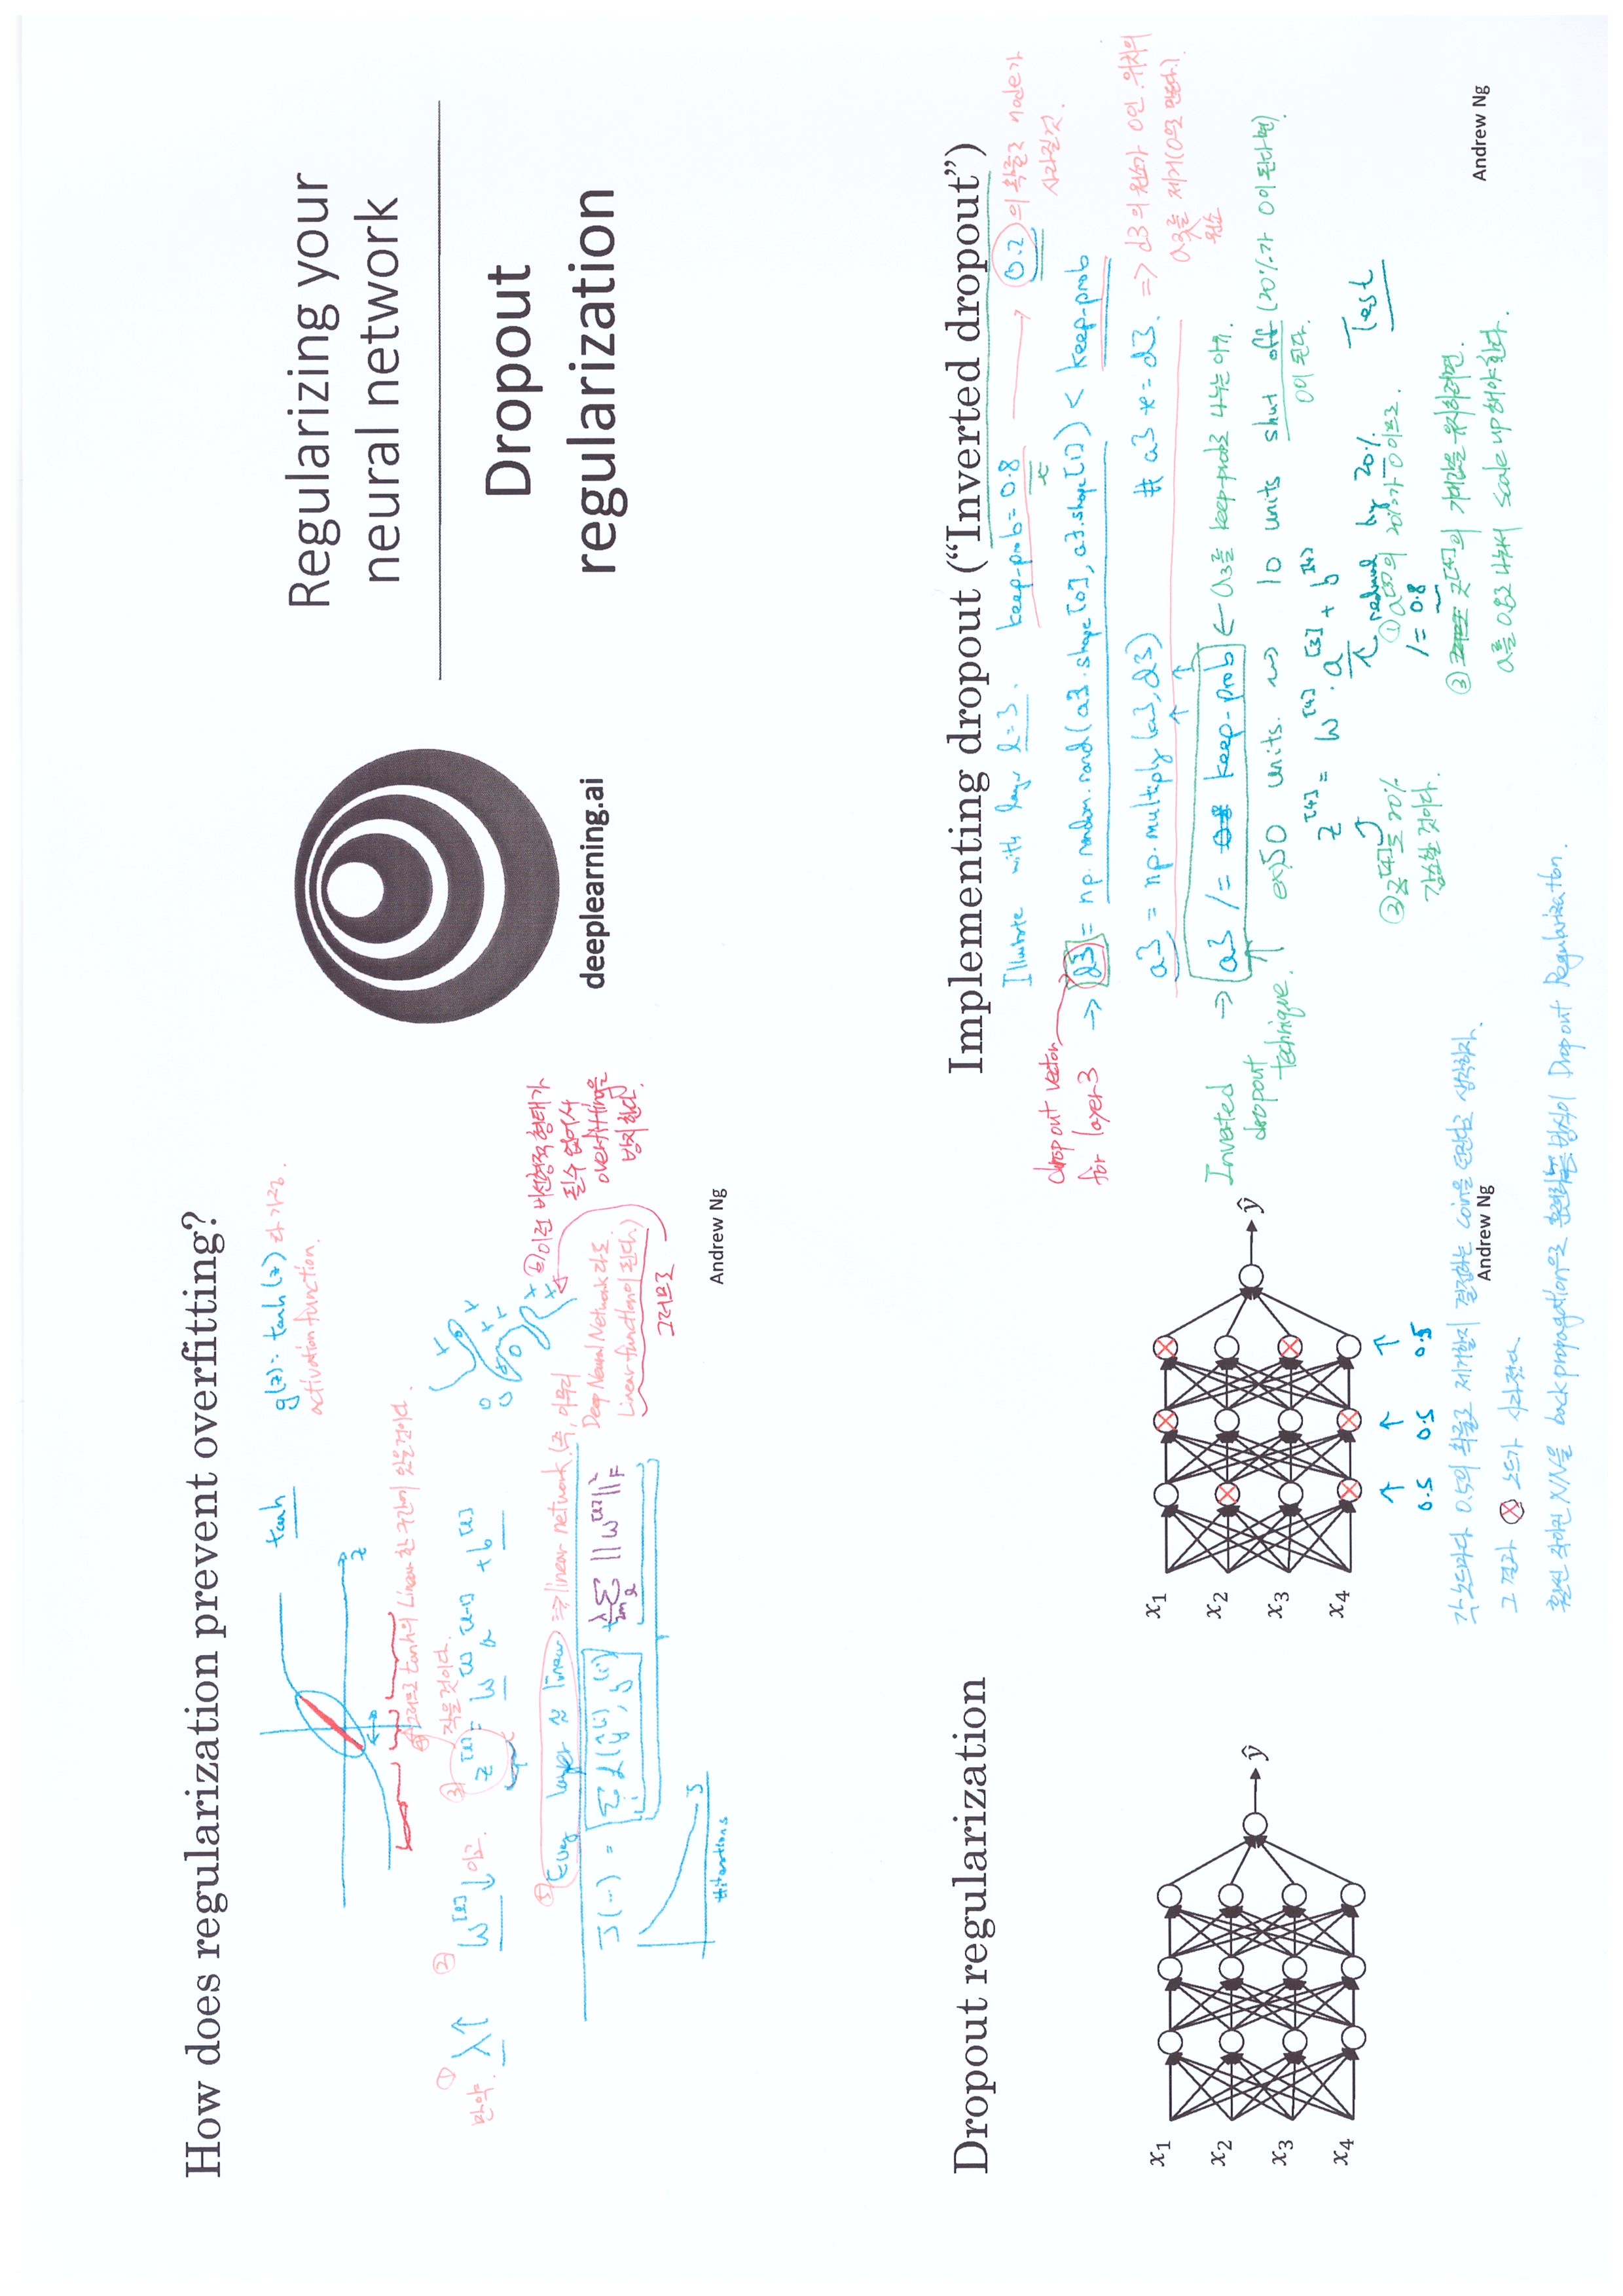 How does regularization prevent overfitting?
tanh
g(z) = tanh(z) 라 가정.
activation function.
z
④ 그러므로 tanh의 Linear 한 구간에 있을것이다.
작을것이다.
① 만약. λ↑
② W^[l]↓ 이고.
③ z^[l] = W^[l] a^[l-1] + b^[l]
⑤ Every layer ≈ linear ⇒ linear network. (즉, 아무리
Deep Neural Network 라도
Linear function이 된다.)
그러므로
⑥ 이런 비선형적 형태가
필수 없어서
overfitting을
방지한다.
J(...) = Σ_i L(ŷ^(i), y^(i)) + λ/2m Σ_l ||W^[l]||²_F
J
#iterations
Andrew Ng
deeplearning.ai
Regularizing your
neural network
Dropout
regularization
Dropout regularization
x1
x2
x3
x4
ŷ
x1
x2
x3
x4
ŷ
↑ ↑ ↑
0.5 0.5 0.5
각 노드마다 0.5의 확률로 제거할지 결정하는 coin을 던진다고 생각하자.
Andrew Ng
그 결과 ⊗ 노드가 사라졌다
훨씬 작아진 NN을 back propagation으로 훈련하는 방식이 Dropout Regularization.
Implementing dropout (“Inverted dropout”)
Illustrate with layer l=3. keep-prob = 0.8 → 0.2 의 확률로 node가
사라질것.
dropout vector
for layer3
→ d3 = np.random.rand(a3.shape[0], a3.shape[1]) < keep-prob
a3 = np.multiply(a3, d3) # a3 *= d3. ⇒ d3의 원소가 0인 위치의
a3를 제거(0으로 만든다.).
원소
Inverted
dropout
technique.
→ a3 /= 0.8 keep-prob ← a3를 keep-prob로 나누는 이유.
ex) 50 units. ⇝ 10 units shut off (20%가 0이 된다면)
0이 된다.
z^[4] = W^[4] · a^[3] + b^[4]
reduced by 20%.
Test
① a^[3]의 20%가 0이므로.
② z^[4]도 20%
감소할 것이다.
/= 0.8
③ z^[4]의 기대값을 유지하려면.
a를 0.8로 나눠서 scale up 해야한다.
Andrew Ng